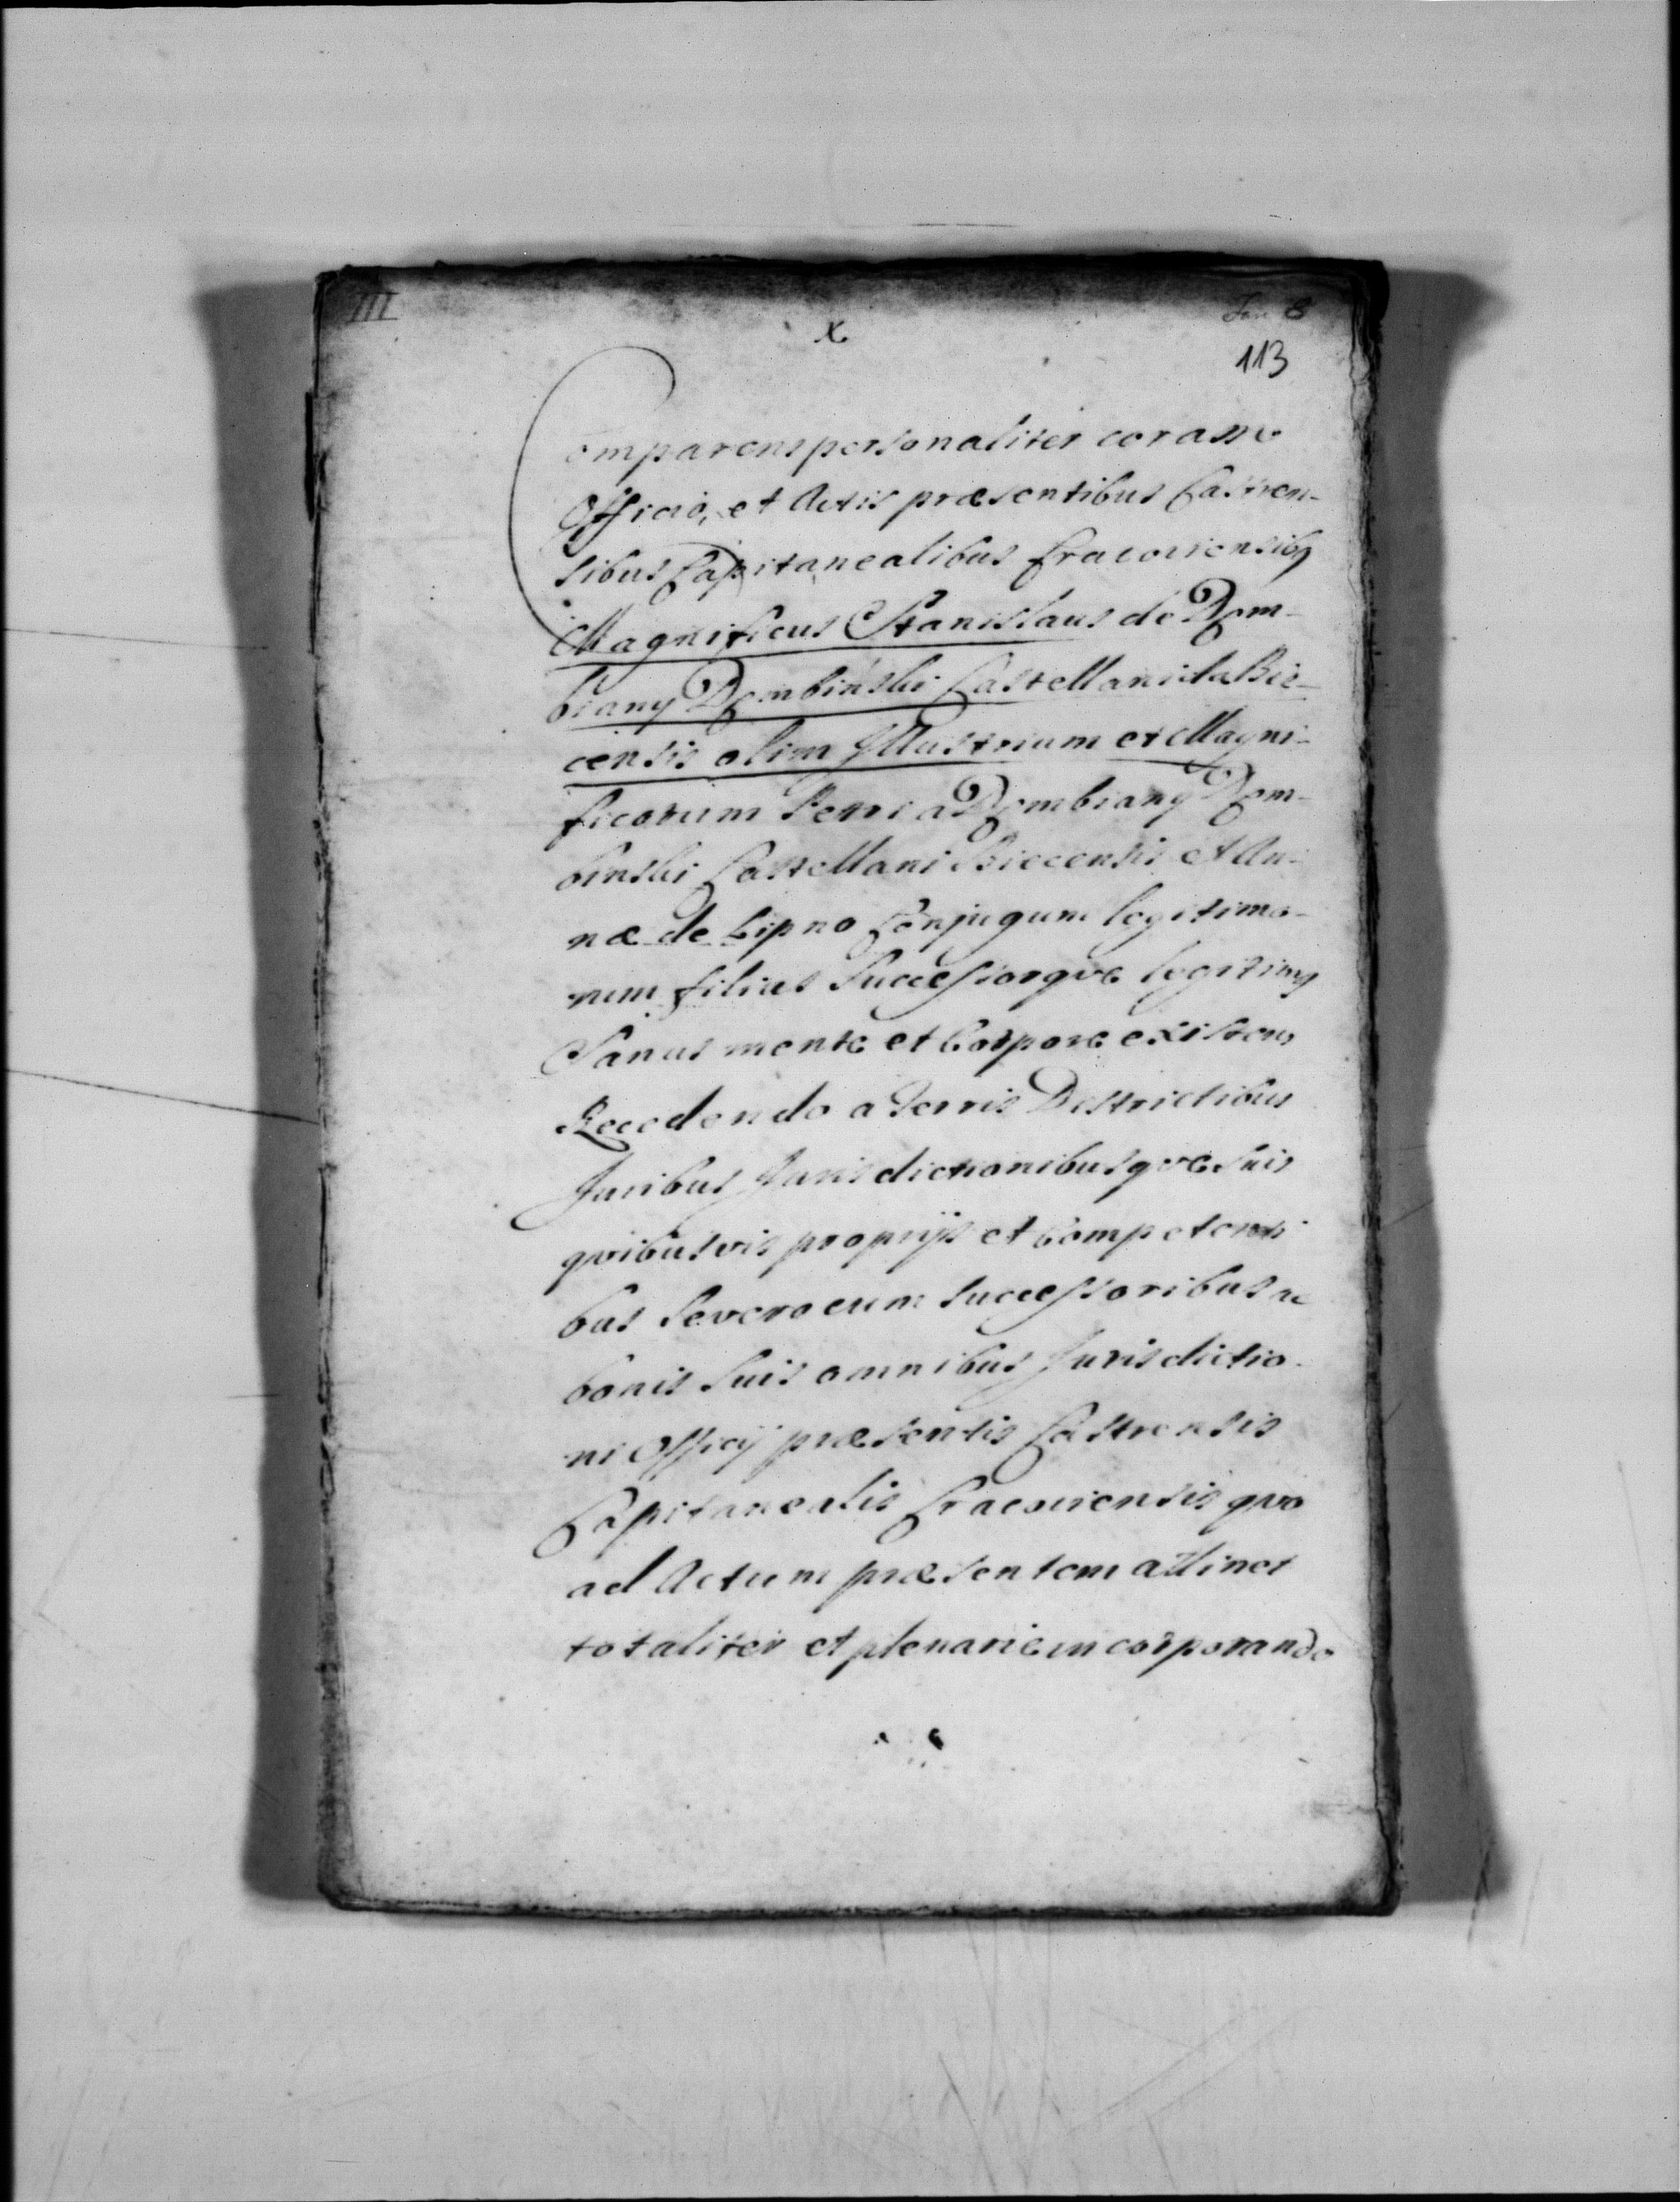 III
Jan 8
X
113
Comparens personaliter coram
Officio, et Actis præsentibus Castren-
sibus Capitanealibus Cracoviensibq
Magnificus Stanislaus de Dom-
biany Dombinski Castellanida Bie-
censis olim Illustrium et Magni-
ficorum Petri a Dombiany Dom-
binski Castellani Biecensis et An-
næ de Lipno Conjugum legitimo-
rum filius Successorqve legitimq
Sanus mente et Corpore existens
Recedendo a Terris Districtibus
Juribus Jurisdictionibusqve suis
qvibusvis proprijs et Competenti-
bus Se vero cum Successoribus ac
bonis Suis omnibus Jurisdictio-
ni Officij præsentis Castrensis
Capitanealis Cracoviensis qvo
ad Actum præsentem attinet
totaliter et plenarie incorporando